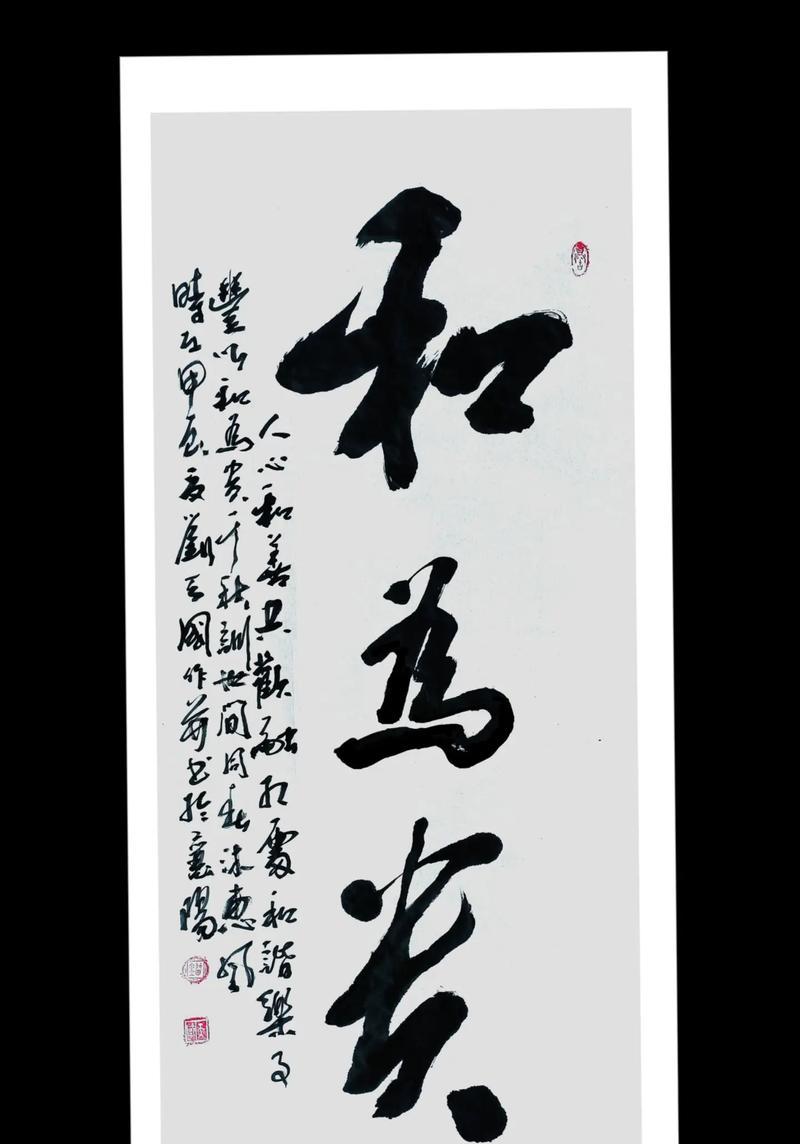 和為貴
人心和善共歡融相處和諧樂事
豐以和為貴千秋訓世間同春沐惠風
時在甲辰夏劉國作并書於襄陽